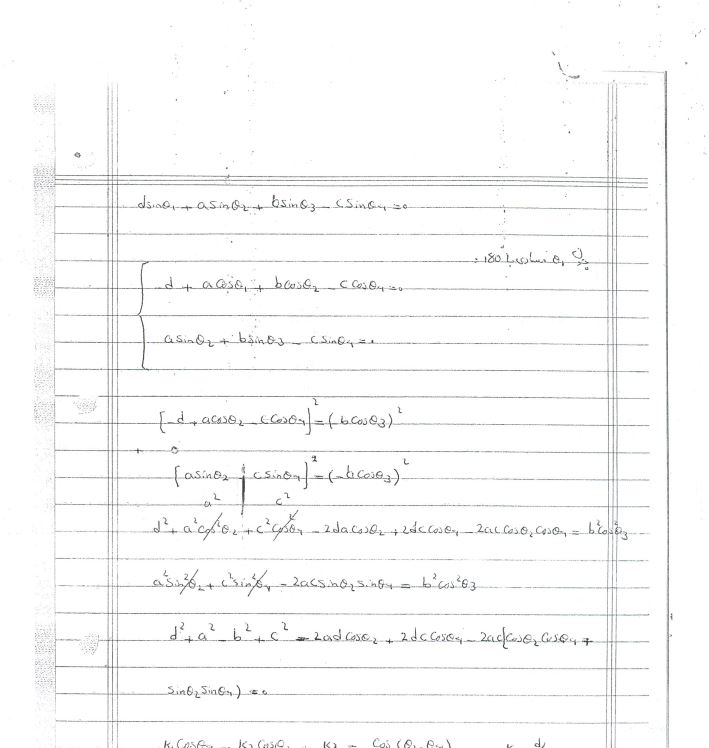 dsinθ₁ + asinθ₂ + bsinθ₃ - csinθ₄ = 0
θ₁ 180°
-d + acosθ₁ + bcosθ₂ - ccosθ₄ = 0
asinθ₂ + bsinθ₃ - csinθ₄ = 0
[-d + acosθ₂ - ccosθ₄]² = (-bcosθ₃)²
+
[asinθ₂ - csinθ₄]² = (-bcosθ₃)²
a² c²
d² + a²cos²θ₂ + c²cos²θ₄ - 2dacosθ₂ + 2dccosθ₄ - 2accosθ₂cosθ₄ = b²cos²θ₃
a²sin²θ₂ + c²sin²θ₄ - 2acsinθ₂sinθ₄ = b²cos²θ₃
d² + a² - b² + c² - 2adcosθ₂ + 2dccosθ₄ - 2ac(cosθ₂cosθ₄ +
sinθ₂sinθ₄) = 0